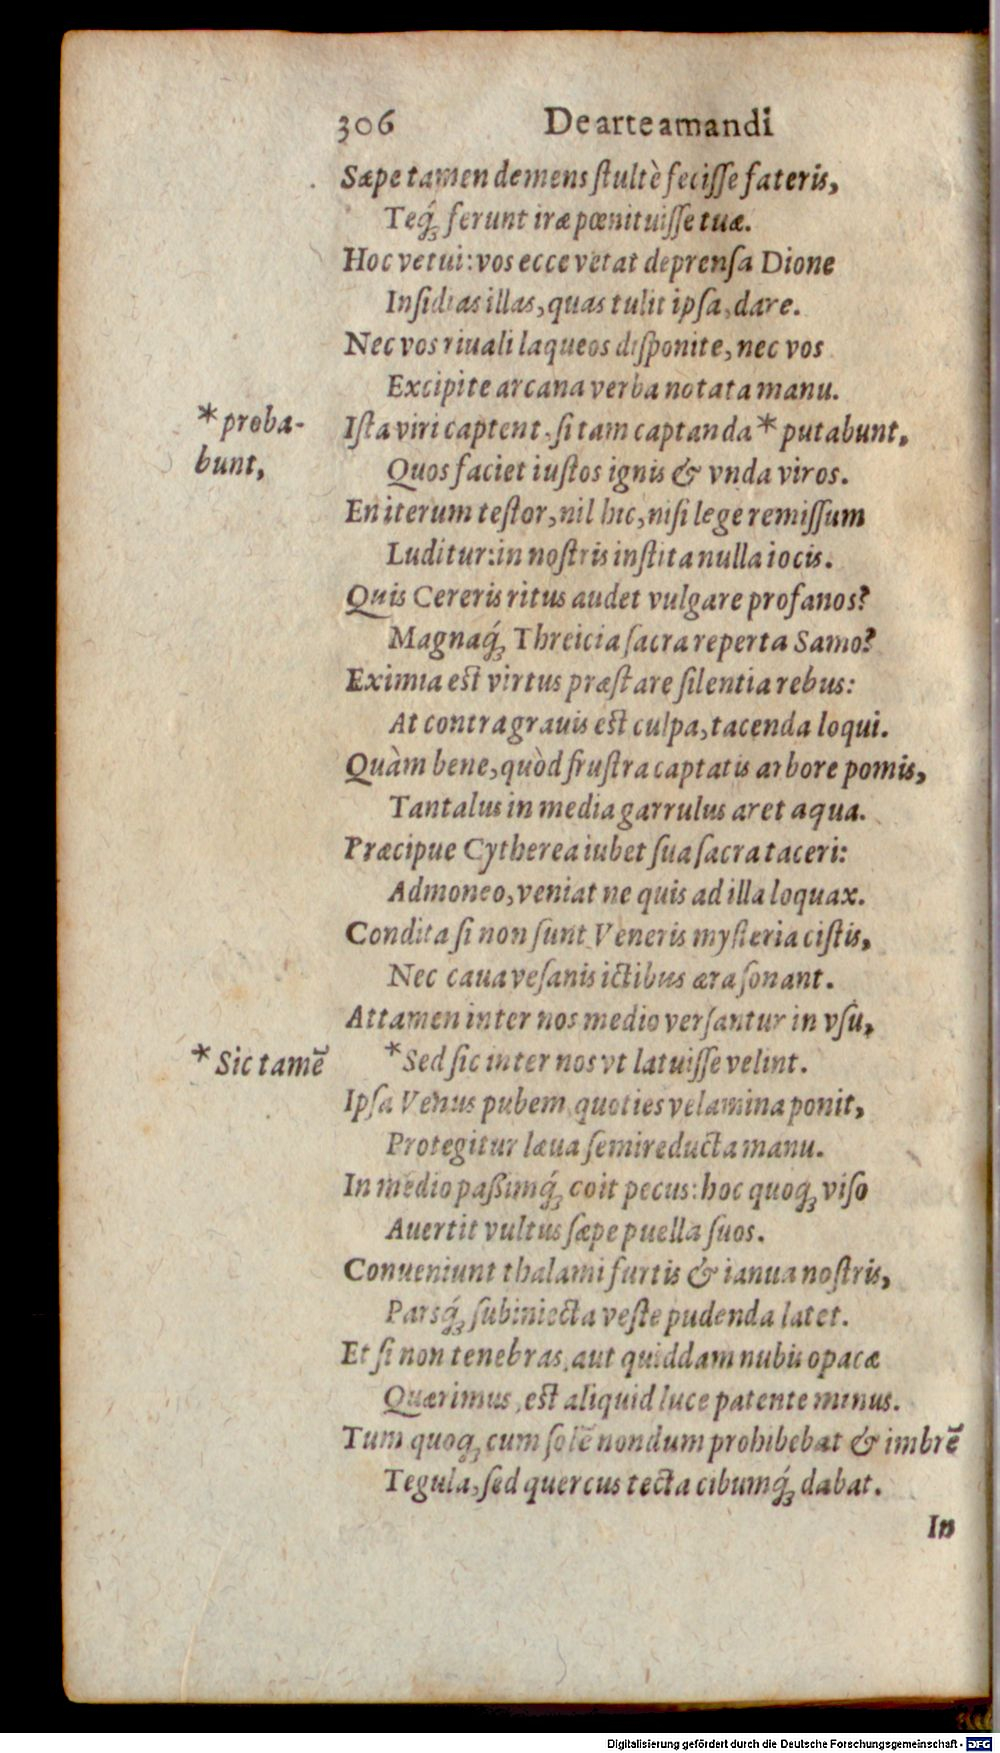 306 De arte amandi
Sæpe tamen demens ſtultè feciſſe fateris,
Teq́; ferunt iræ pœnituiſſe tuæ.
Hoc vetui: vos ecce vetat deprenſa Dione
Inſidias illas, quas tulit ipſa, dare.
Nec vos riuali laqueos diſponite, nec vos
Excipite arcana verba notata manu.
* proba-
bunt,
Iſta viri captent, ſi tam captanda * putabunt,
Quos faciet iuſtos ignis & vnda viros.
En iterum teſtor, nil hic, niſi lege remiſſum
Luditur: in noſtris inſtita nulla iocis.
Quis Cereris ritus audet vulgare profanos?
Magnaq́; Threicia ſacra reperta Samo?
Eximia eſt virtus præſtare ſilentia rebus:
At contra grauis eſt culpa, tacenda loqui.
Quàm bene, quòd fruſtra captatis arbore pomis,
Tantalus in media garrulus aret aqua.
Præcipue Cytherea iubet ſua ſacra taceri:
Admoneo, veniat ne quis ad illa loquax.
Condita ſi non ſunt Veneris myſteria ciſtis,
Nec caua veſanis ictibus æra ſonant.
Attamen inter nos medio verſantur in vſu,
* Sic tamē
* Sed ſic inter nos vt latuiſſe velint.
Ipſa Venus pubem quoties velamina ponit,
Protegitur læua ſemireducta manu.
In medio paßimq́; coit pecus: hoc quoq; viſo
Auertit vultus ſæpe puella ſuos.
Conueniunt thalami furtis & ianua noſtris,
Parsq́; ſubiniecta veſte pudenda latet.
Et ſi non tenebras, aut quiddam nubis opacæ
Quærimus, eſt aliquid luce patente minus.
Tum quoq; cum ſolē nondum prohibebat & imbrē
Tegula, ſed quercus tecta cibumq́; dabat.
In
Digitalisierung gefördert durch die Deutsche Forschungsgemeinschaft - DFG